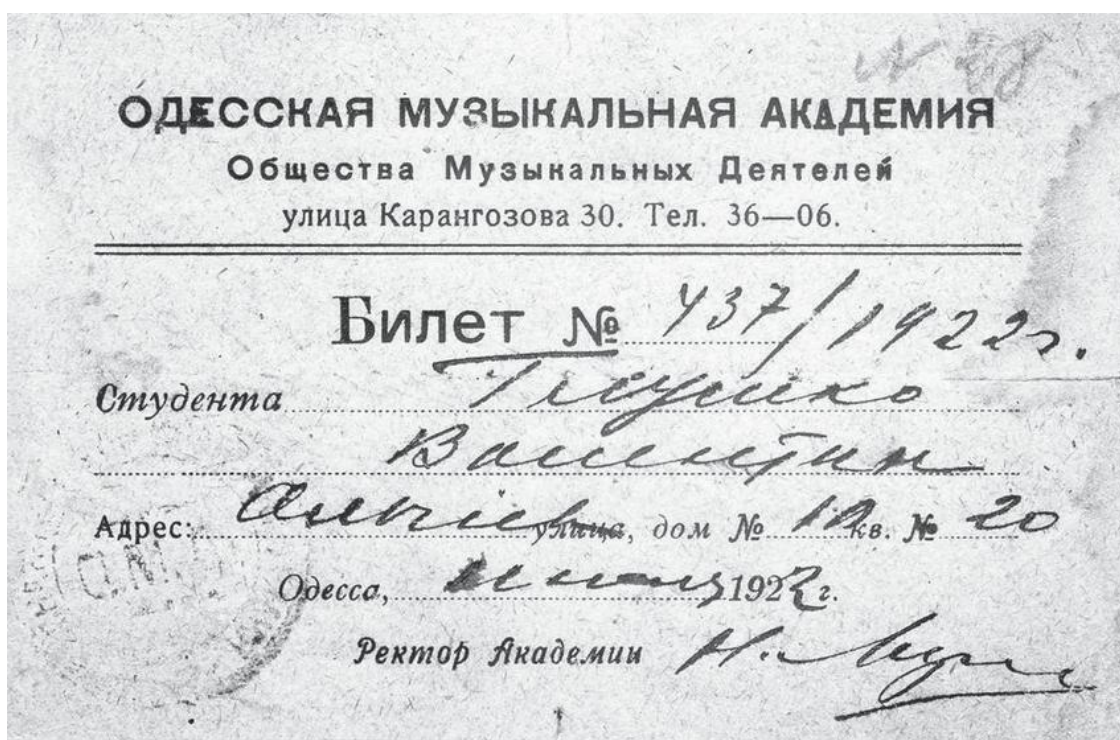 ОДЕССКАЯ МУЗЫКАЛЬНАЯ АКАДЕМИЯ
Общества Музыкальных Деятелей
улица Карангозова 30. Тел. 36—06.
Билет № 437/1922г.
Студента Глушко
Валентин
Адрес: улица, дом № кв. № 20
Одесса, 1922 г.
Ректор Академии Н.